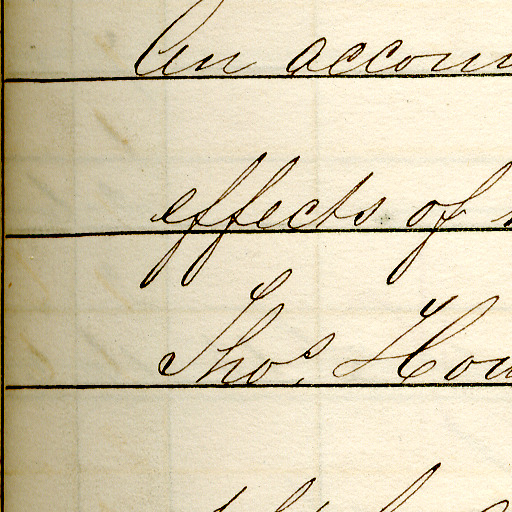 An accou
effects of
Thos. Hou